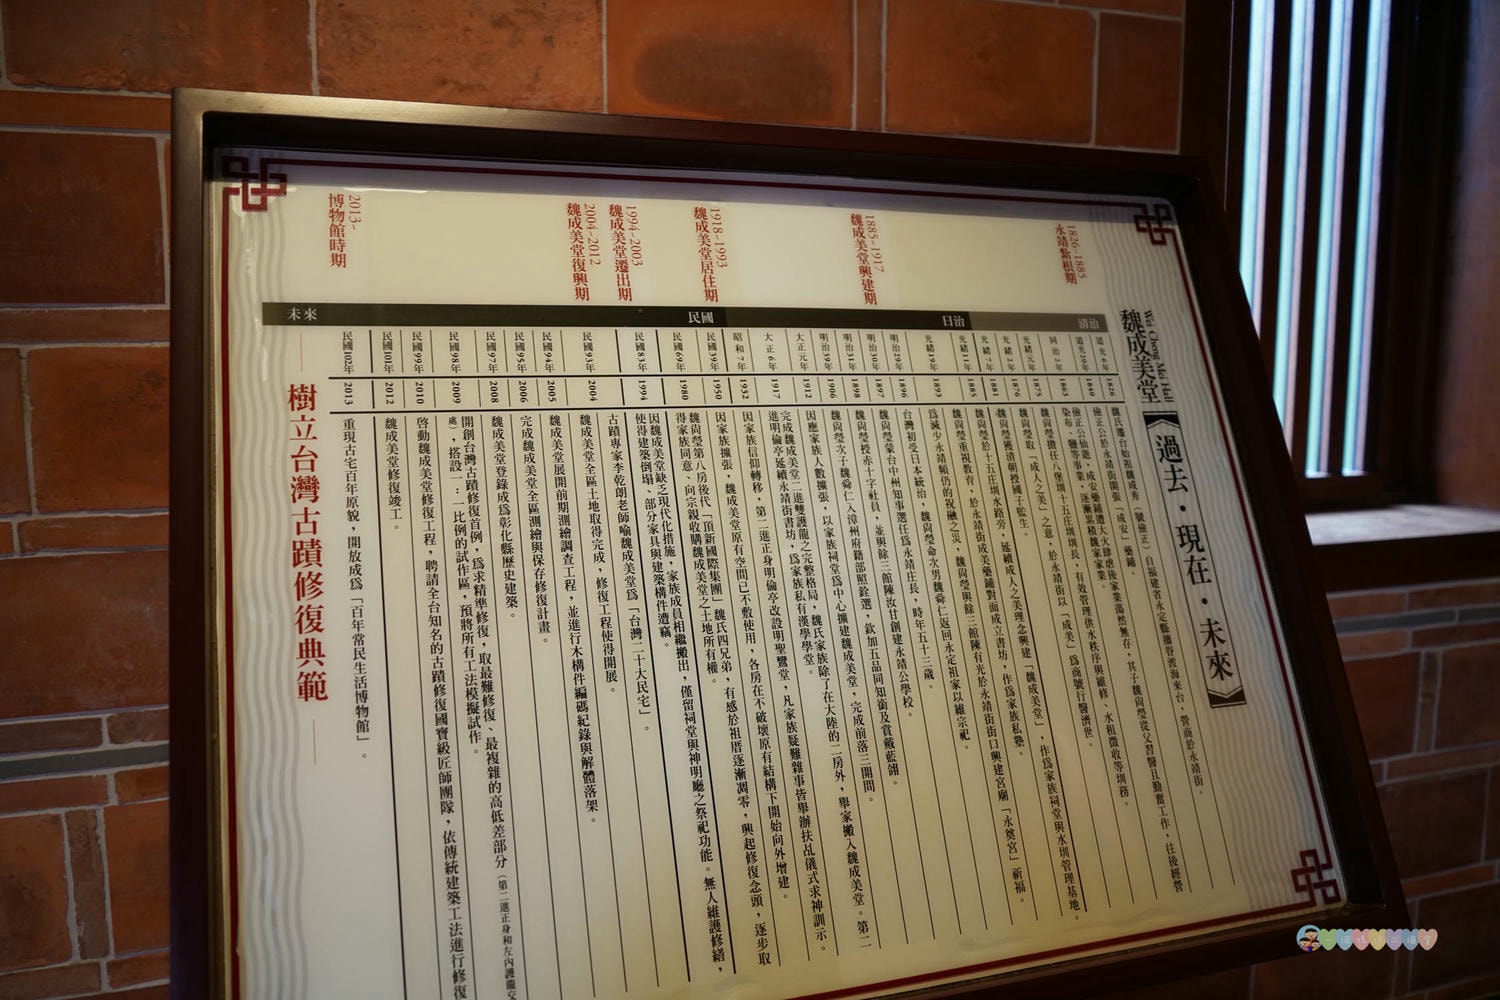 Wei Cheng Mei Hall
魏成美堂
過去・現在・未來
1826~1885
永靖紮根期
1885~1917
魏成美堂興建期
1918~1993
魏成美堂居住期
1994~2003
魏成美堂遷出期
2004~2012
魏成美堂復興期
2013~
博物館時期
清治
日治
民國
未來
道光6年
1826
魏氏遷台始祖魏成秀(號檢正)自福建省永定縣攜眷渡海來台,營商於永靖街。
道光20年
1840
檢正公於永靖街開張「成安」藥鋪
同治2年
1863
檢正公仙逝,成安藥鋪遭大火肆虐後家業蕩然無存,其子魏尚瑩從父習醫且勤奮工作,往後經營
染布、鹽等事業,逐漸累積魏家家業。
光緒元年
1875
魏尚瑩擔任八堡圳十五庄圳圳長,有效管理供水秩序與維修、水租徵收等圳務。
光緒2年
1876
魏尚瑩取「成人之美」之意,於永靖街以「成美」為商號行醫濟世。
光緒7年
1881
魏尚瑩獲清朝授國子監生。
光緒11年
1885
魏尚瑩於十五庄圳水路旁,延續成人之美理念興建「魏成美堂」,作為家族祠堂與水圳管理基地。
1850
魏尚瑩重視教育,於永靖街成美藥鋪對面成立書坊,作為家族私塾。
魏尚瑩與餘三館陳有光於永靖街街口興建宮廟「永奠宮」祈福。
光緒19年
1893
為減少永靖頻仍的祝融之災,魏尚瑩命次男魏舜仁返回永定祖家以維宗祀。
明治29年
1896
台灣初受日本統治,
明治30年
1897
魏尚瑩蒙台中州知事選任為永靖庄長,時年五十三歲。
明治31年
1898
魏尚瑩授赤十字社員,並與餘三館陳汝甘創建永靖公學校。
明治39年
1906
魏尚瑩次子魏舜仁入漳州府籍部照銓選,欽加五品同知銜及賞戴藍翎。
大正元年
1912
因應家族人數擴張,以家族祠堂為中心擴建魏成美堂,完成前落三開間。
大正6年
1917
完成魏成美堂二進雙護龍之完整格局,魏氏家族除了在大陸的二房外,舉家搬入魏成美堂。第二
進明倫亭延續永靖街書坊,為家族私有漢學學堂。
昭和7年
1932
因家族信仰轉移,第二進正身明倫亭改設明聖鸞堂,凡家族疑難雜事皆舉辦扶乩儀式求神訓示。
民國39年
1950
因家族擴張,魏成美堂原有空間已不敷使用,各房在不破壞原有結構下開始向外增建。
民國69年
1980
魏尚瑩第八房後代「頂新國際集團」魏氏四兄弟,有感於祖厝逐漸凋零,興起修復念頭,逐步取
得家族同意、向宗親收購魏成美堂之土地所有權。
民國83年
1994
因魏成美堂缺乏現代化措施,家族成員相繼搬出,僅留祠堂與神明廳之祭祀功能。無人維護修繕,
使得建築倒塌、部分家具與建築構件遭竊。
古蹟專家李乾朗老師喻魏成美堂為「台灣二十大民宅」。
民國93年
2004
魏成美堂全區土地取得完成,修復工程使得開展。
民國94年
2005
魏成美堂展開前期測繪調查工程,並進行木構件編碼紀錄與解體落架。
民國95年
2006
完成魏成美堂全區測繪與保存修復計畫。
民國97年
2008
魏成美堂登錄成為彰化縣歷史建築。
民國98年
2009
開創台灣古蹟修復首例,為求精準修復,取最難修復、最複雜的高低差部分(第二進正身和左內護龍交
處),搭設一:一比例的試作區,預將所有工法模擬試作。
民國99年
2010
啓動魏成美堂修復工程,聘請全台知名的古蹟修復國寶級匠師團隊,依傳統建築工法進行修復
民國101年
2012
魏成美堂修復竣工。
民國102年
2013
重現古宅百年原貌,開放成為「百年常民生活博物館」。
樹立台灣古蹟修復典範